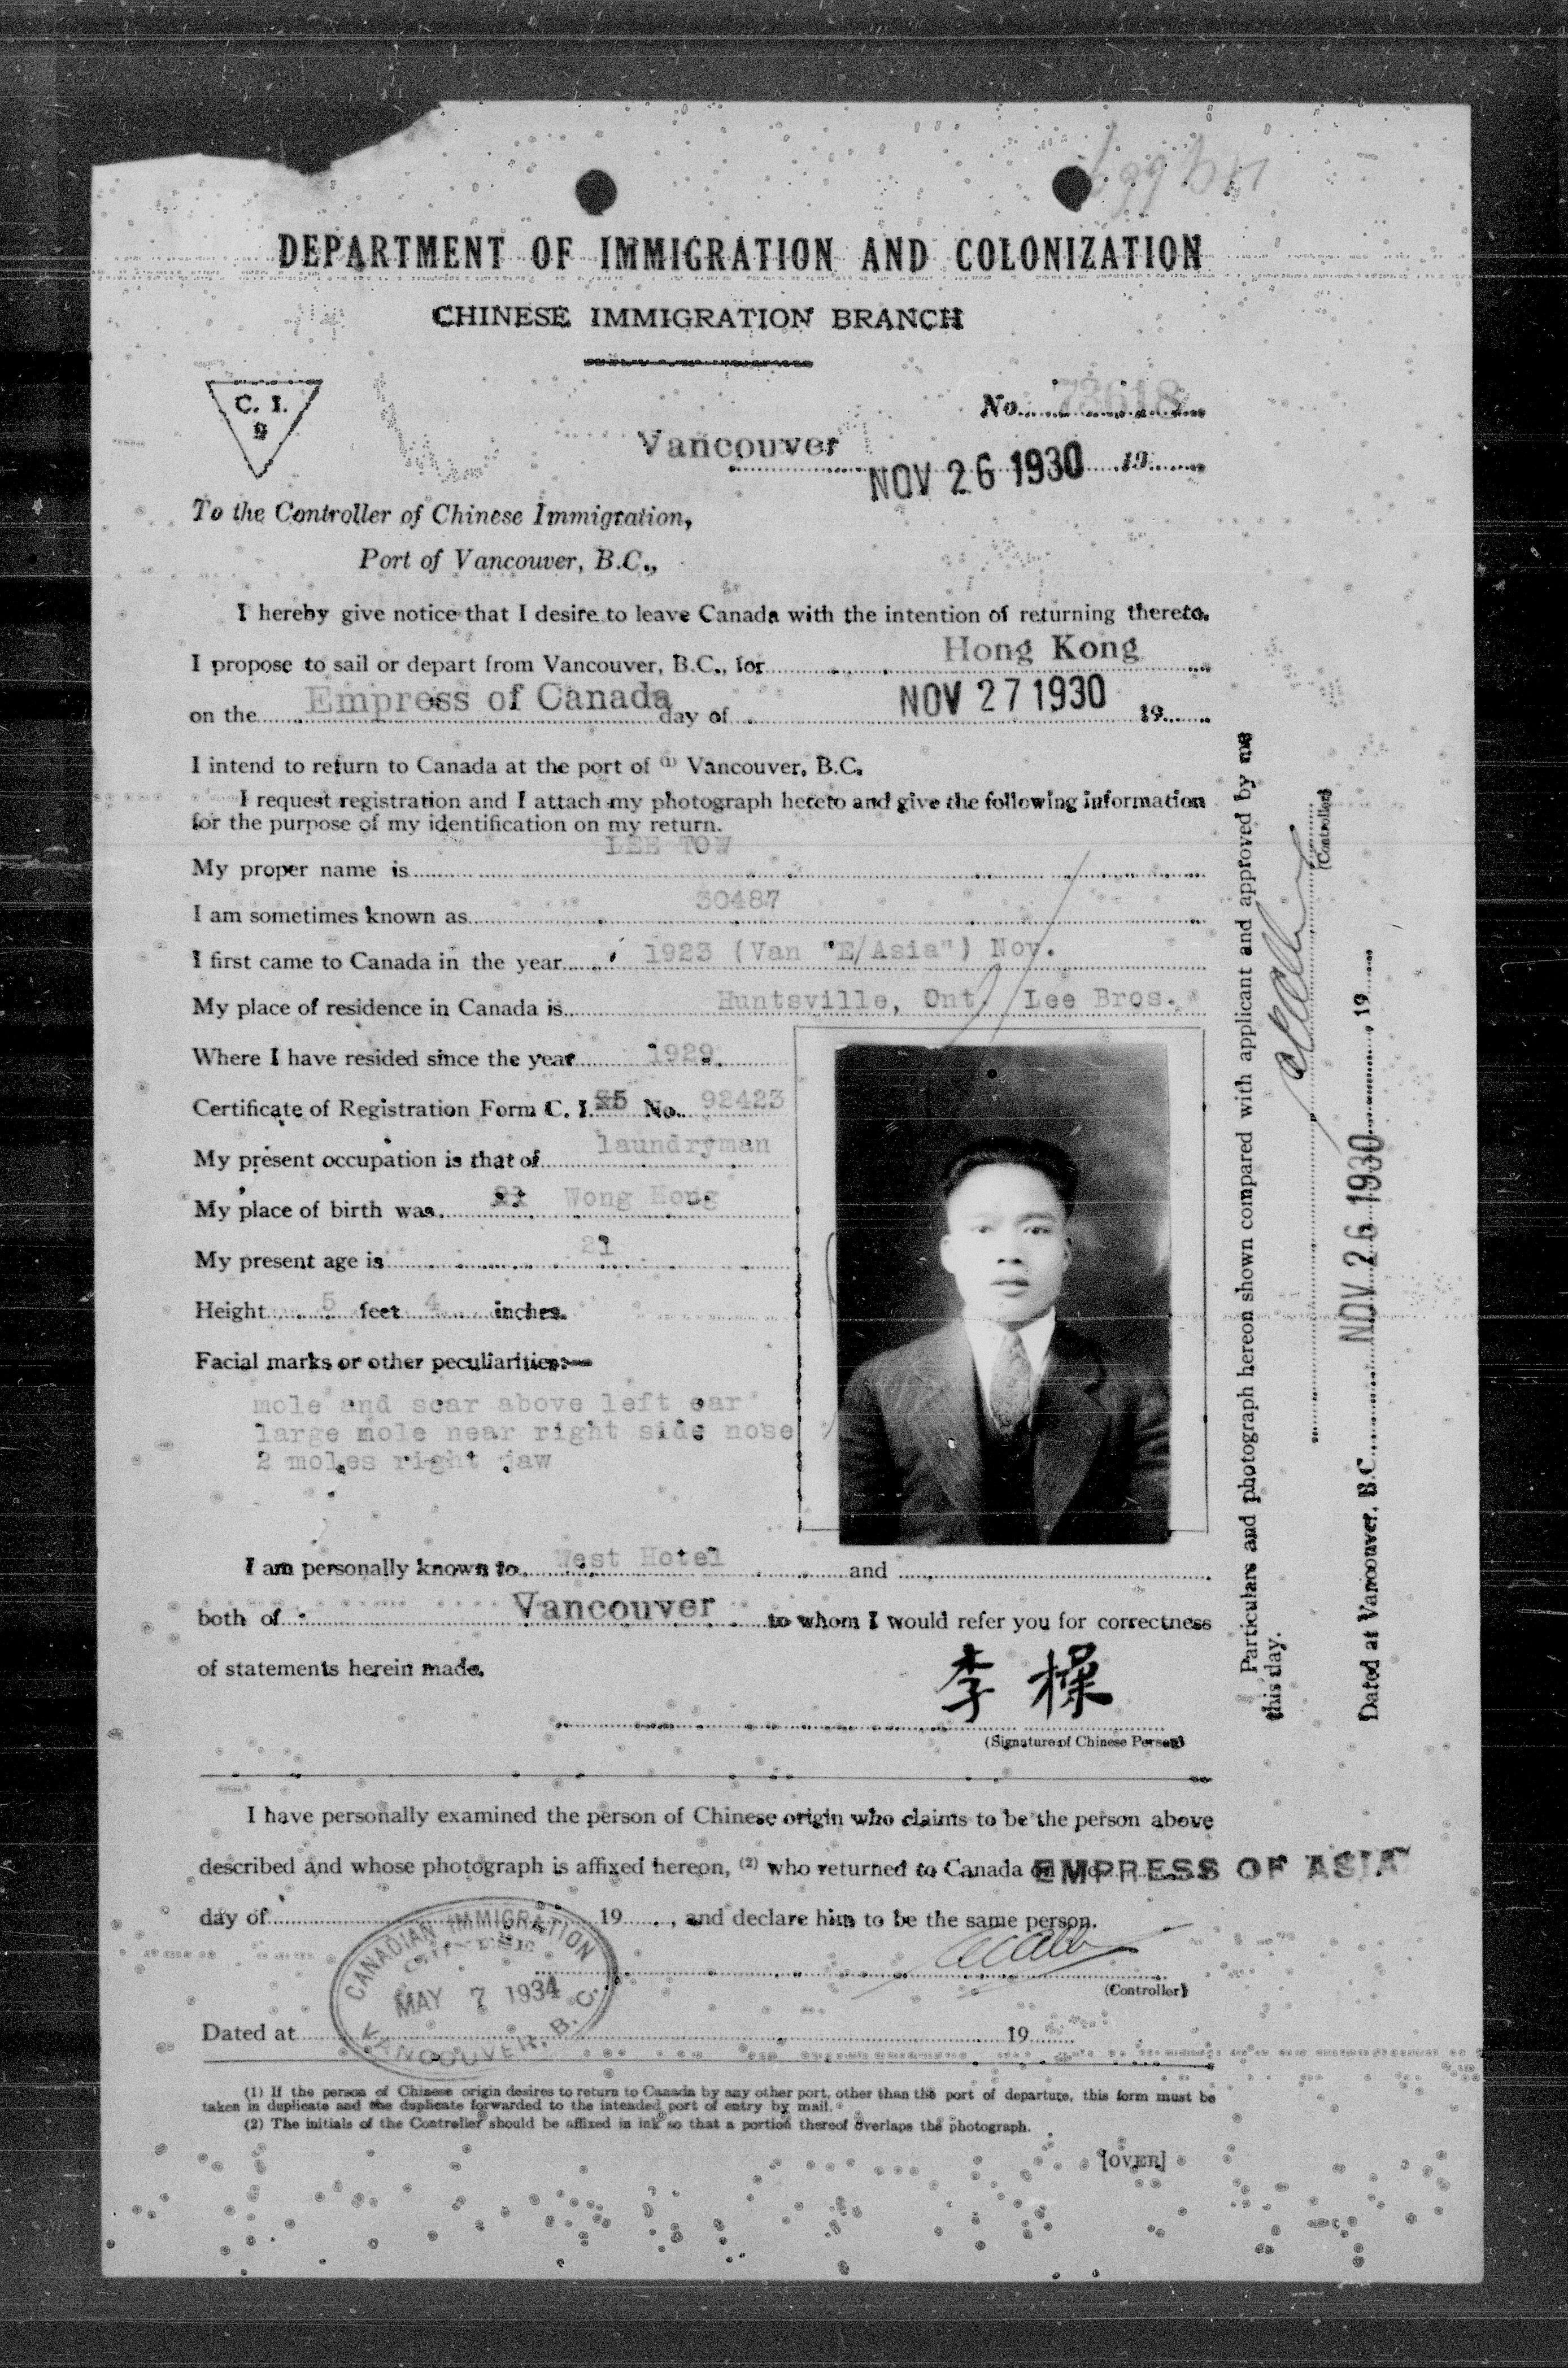 DEPARTMENT OF IMMIGRATION AND COLONIZATION
CHINESE IMMIGRATION BRANCH
C. I.
9
No. 73618
Vancouver NOV 26 1930 19
To the Controller of Chinese Immigration,
Port of Vancouver, B.C.,
I hereby give notice that I desire to leave Canada with the intention of returning thereto.
I propose to sail or depart from Vancouver, B.C., for Hong Kong
on the Empress of Canada day of NOV 27 1930 19
I intend to return to Canada at the port of (1) Vancouver, B.C.
I request registration and I attach my photograph hereto and give the following information
for the purpose of my identification on my return.
My proper name is LEE TOW
I am sometimes known as 30487
I first came to Canada in the year 1923 (Van "E/Asia") Nov.
My place of residence in Canada is Huntsville, Ont. Lee Bros.
Where I have resided since the year 1929.
Certificate of Registration Form C. I. 5 No. 92423
My present occupation is that of laundryman
My place of birth was Wong Hong
My present age is 21
Height 5 feet 4 inches.
Facial marks or other peculiarities:—
mole and scar above left ear
large mole near right side nose
2 moles right jaw
I am personally known to West Hotel and
both of Vancouver to whom I would refer you for correctness
of statements herein made.
李 操
(Signature of Chinese Person)
I have personally examined the person of Chinese origin who claims to be the person above
described and whose photograph is affixed hereon, (2) who returned to Canada on EMPRESS OF ASIA
day of 19 , and declare him to be the same person.
(Controller)
CANADIAN IMMIGRATION
MAY 7 1934
VANCOUVER, B. C.
Dated at 19
(1) If the person of Chinese origin desires to return to Canada by any other port, other than the port of departure, this form must be
taken in duplicate and the duplicate forwarded to the intended port of entry by mail.
(2) The initials of the Controller should be affixed in ink so that a portion thereof overlaps the photograph.
[OVER]
Particulars and photograph hereon shown compared with applicant and approved by me
this day.
(Controller)
Dated at Vancouver, B.C. NOV 26 1930 , 19